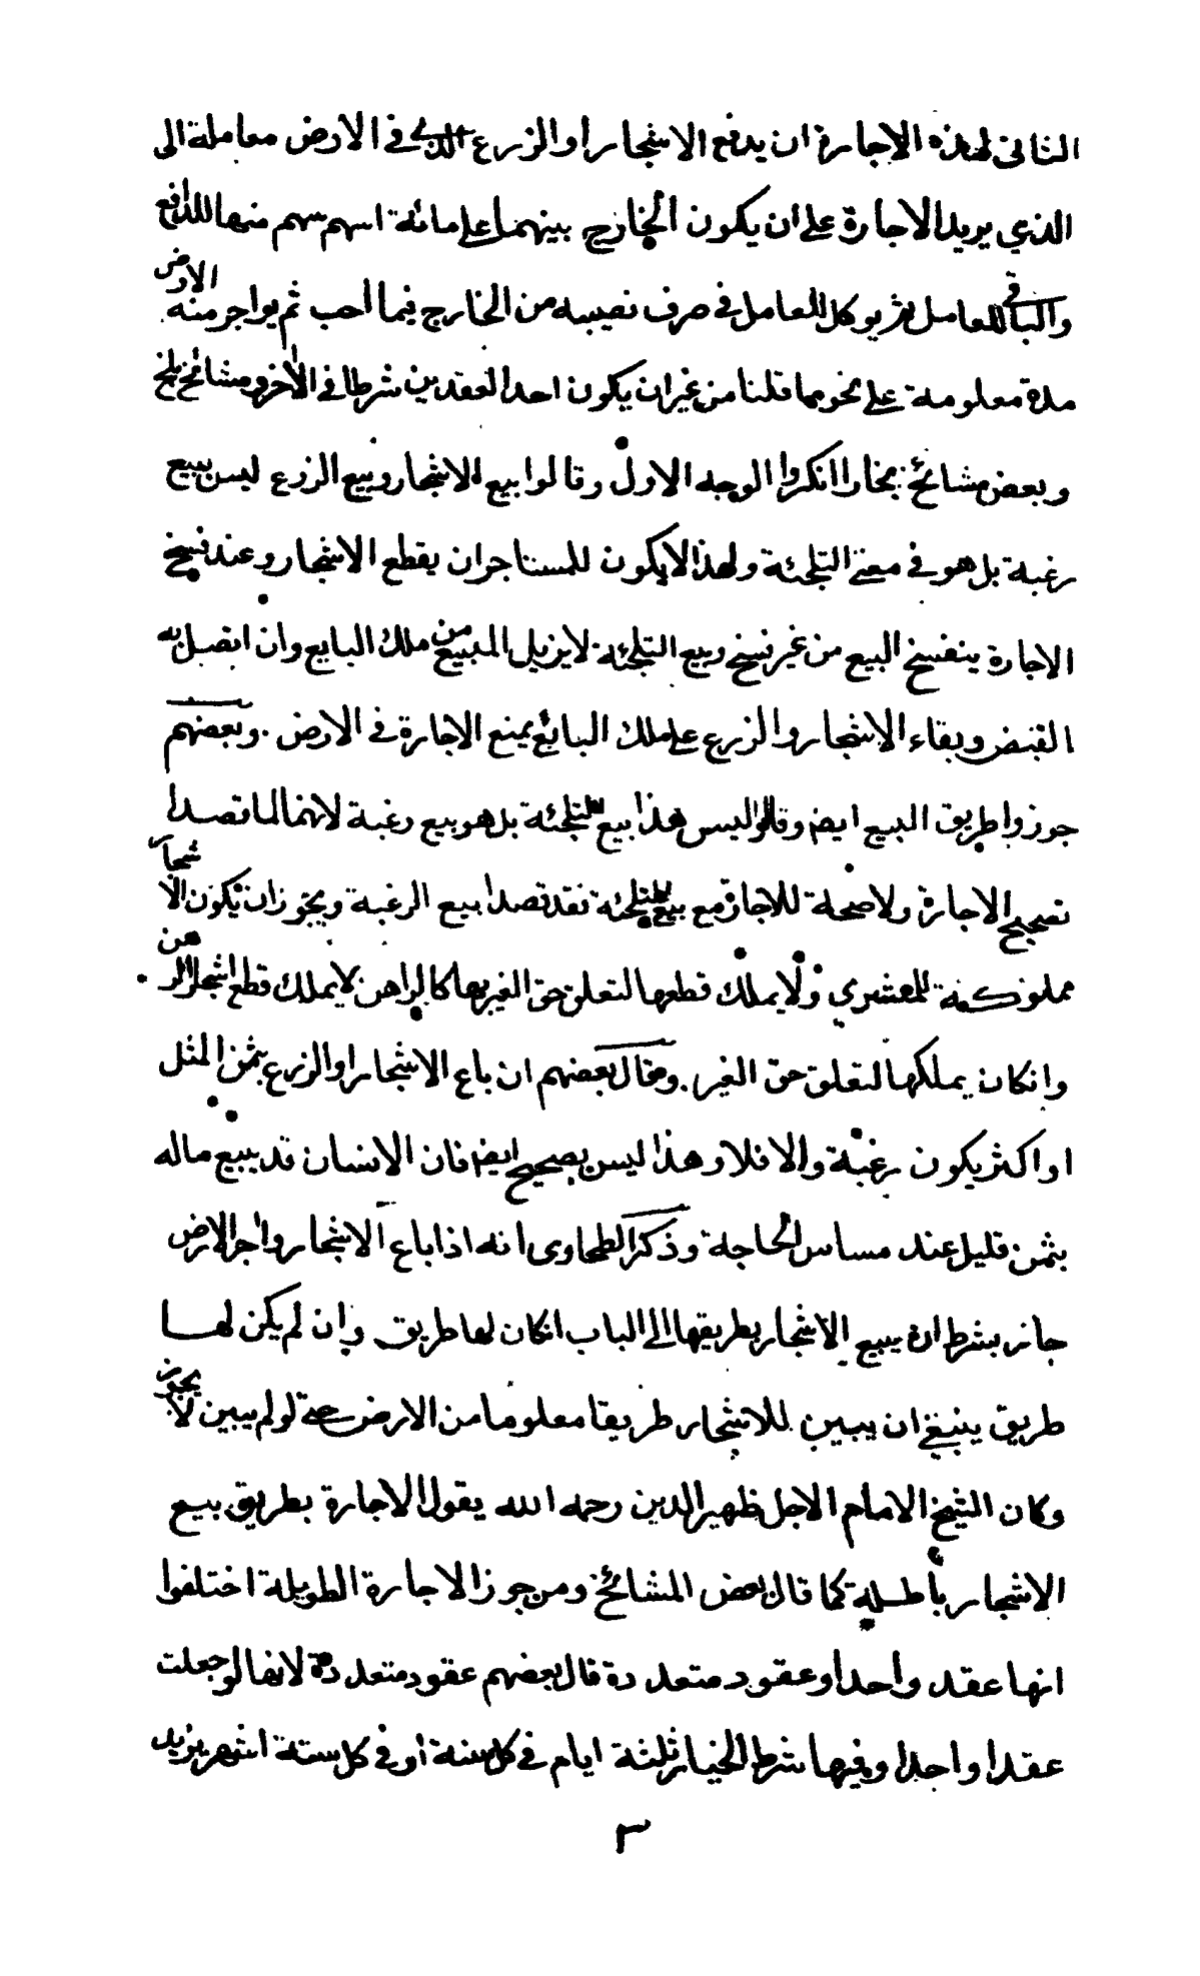 الثانى لهذه الاجارة ان يدفع الاشجار او الزرع الذي في الارض معاملة الى
الذي يريد الاجارة على ان يكون الخارج بينهما على مائة اسهم سهم منها للدافع
والباقي للعامل ثم يوكل العامل في صرف نصيبه من الخارج فيما احب ثم يواجر منه الارض
مدة معلومة على نحو ما قلنا من غير ان يكون احد العقدين شرطا في الاخر ومشائخ بلخ
وبعض مشائخ بخارا انكروا الوجه الاول وقالوا بيع الاشجار وبيع الزرع ليس ببيع
رغبة بل هو في معنى التلجئة ولهذا لا يكون للمستاجر ان يقطع الاشجار وعند فسخ
الاجارة ينفسخ البيع من غير فسخ وبيع التلجئة لا يزيل المبيع من ملك البايع وان اتصل به
القبض وبقاء الاشجار والزرع على ملك البائع يمنع الاجارة في الارض . وبعضهم
جوزوا طريق البيع ايضا وقالوا ليس هذا بيع تلجئة بل هو بيع رغبة لانهما لما قصدا
تصحيح الاجارة ولا صحة للاجازة مع بيع التلجئة فقد قصدا بيع الرغبة ويجوز ان يكون الاشجار
مملوكة للمشتري ولا يملك قطعها لتعلق حق الغير بها كالراهن لا يملك قطع اشجار الرهن
وانكان يملكها لتعلق حق الغير . وقال بعضهم ان باع الاشجار او الزرع بثمن المثل
او اكثر يكون رغبة والا فلا وهذا ليس بصحيح ايضا فان الانسان قد يبيع ماله
بثمن قليل عند مساس الحاجة وذكر الطحاوى انه اذا باع الاشجار واجر الارض
جاز بشرط ان يبيع الاشجار بطريقها الى الباب انكان لها طريق وان لم يكن لها
طريق ينبغي ان يبين للاشجار طريقا معلوما من الارض حتى لو لم يبين لا يجوز
وكان الشيخ الامام الاجل ظهير الدين رحمه الله يقول الاجارة بطريق بيع
الاشجار باطلة كما قال بعض المشائخ ومن جوز الاجارة الطويلة اختلفوا
انها عقد واحد او عقود متعددة قال بعضهم عقود متعددة لانها لو جعلت
عقدا واحدا وفيها شرط الخيار ثلثة ايام في كل سنة او في كل ستة اشهر يزيد
٣